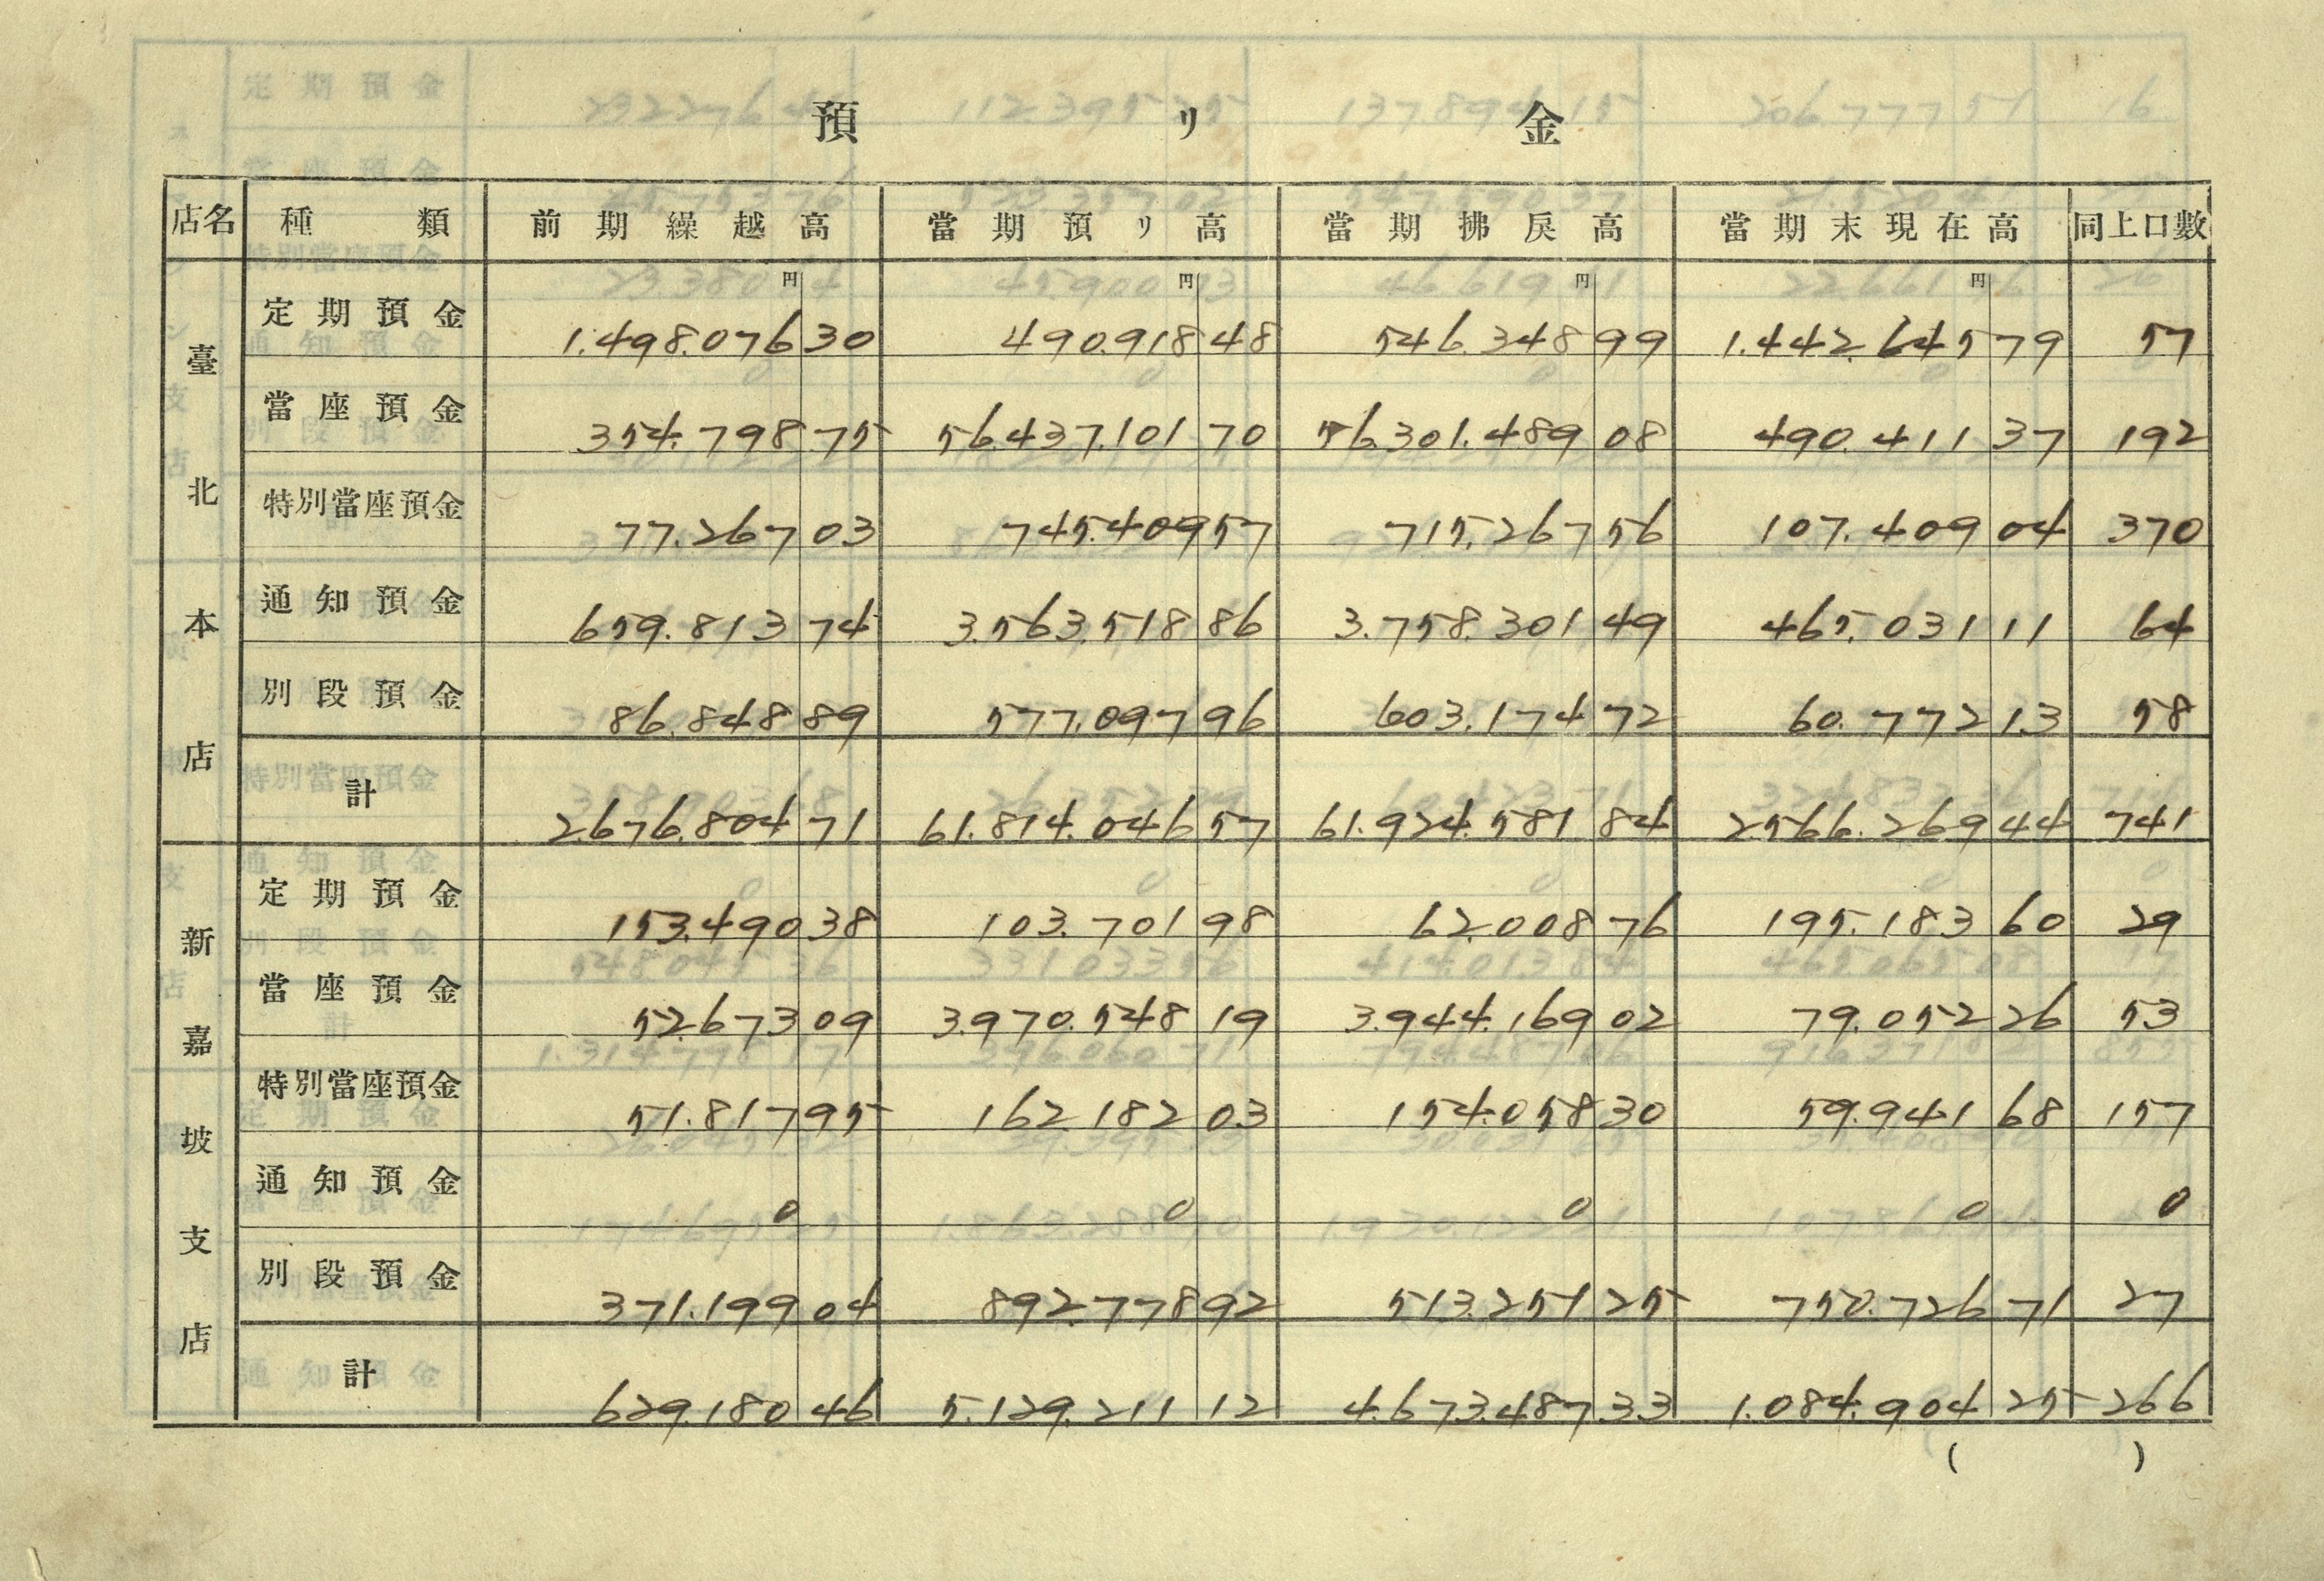 預リ金
店名 種類 前期繰越高 當期預リ高 當期拂戻高 當期末現在高 同上口數
円 円 円 円
臺北本店
定期預金 1.498.076 30 490.918 48 546.348 99 1.442.645 79 57
當座預金 354.798 75 56.437.101 70 56.301.489 08 490.411 37 192
特別當座預金 77.267 03 745.409 57 715.267 56 107.409 04 370
通知預金 659.813 74 3.563.518 86 3.758.301 49 465.031 11 64
別段預金 86.848 89 577.097 96 603.174 72 60.772 13 58
計 2.676.804 71 61.814.046 57 61.924.581 84 2.566.269 44 741
新嘉坡支店
定期預金 153.490 38 103.701 98 62.008 76 195.183 60 29
當座預金 52.673 09 3.970.548 19 3.944.169 02 79.052 26 53
特別當座預金 51.817 95 162.182 03 154.058 30 59.941 68 157
通知預金 0 0 0 0 0
別段預金 371.199 04 892.778 92 513.251 25 750.726 71 27
計 629.180 46 5.129.211 12 4.673.487 33 1.084.904 25 266
( )